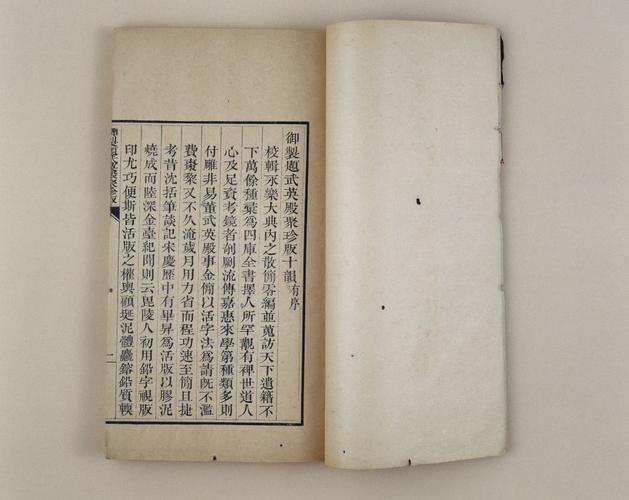 御製題武英殿聚珍版十韻有序
校輯永樂大典內之散簡零編並蒐訪天下遺籍不
下萬餘種彙爲四庫全書擇人所罕覯有裨世道人
心及足資考鏡者剞劂流傳嘉惠來學第種類多則
付雕非易董武英殿事金簡以活字法爲請旣不濫
費棗梨又不久淹歲月用力省而程功速至簡且捷
考昔沈括筆談記宋慶歷中有畢昇爲活版以膠泥
燒成而陸深金臺紀聞則云毘陵人初用鉛字視版
印尤巧便斯皆活版之權輿顧埏泥體麤鎔鉛質輭